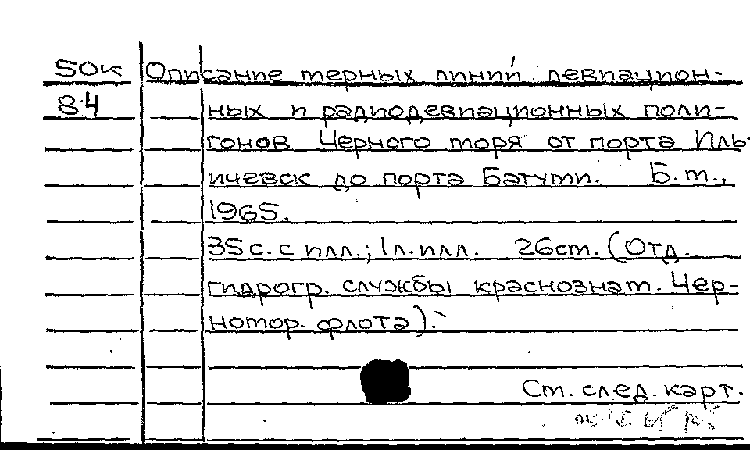 50к Описание мерных линий девиацион-
84 ных и радиодевиационных поли-
гонов Черного моря от порта Иль-
ичевск до порта Батуми. Б.м.,
1965.
35с. с илл.; 1л. илл. 26см. (Отд.
гидрогр. службы краснознам. Чер-
номор. флота).
См. след. карт.